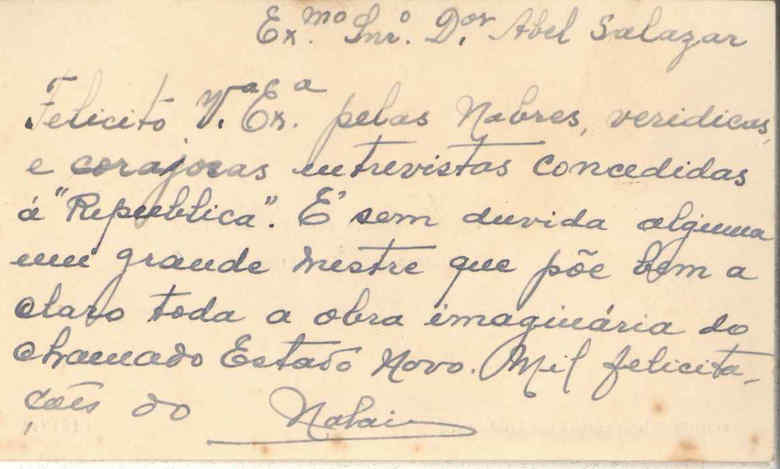 Ex.mo Snr.º D.or Abel Salazar
Felicito V.ª Ex.ª pelas Nobres, veridicas,
e corajosas entrevistas concedidas
á "Republica". É sem duvida alguma
um grande mestre que põe bem a
claro toda a obra imaginária do
chamado Estado Novo. Mil felicita-
ções do